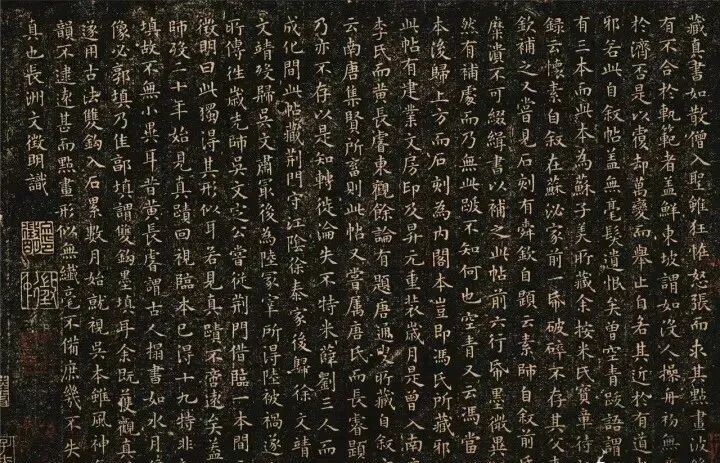 藏真書如散僧入聖雖狂恠怒張而求其點畫波
有不合於軌範者蓋鮮東坡謂如沒人操舟初無
於濟否是以覆却萬變而舉止自若其近於有道
邪若此自敘帖蓋無毫髮遺恨矣曾空青跋語謂
有三本而此本為蘇子美所藏余按米氏寶章待
錄云懷素自叙在蘇泌家前一帋破碎不存其父
欽補之又嘗見石刻有舜欽自題云素師自叙前
糜潰不可綴緝書以補之此帖前六行帋墨微異
然有補處而乃無此跋不知何也空青又云馮當
本後歸上方而石刻為內閣本豈即馮氏所藏邪
此帖有建業文房印及昇元重裝歲月是曾入南
李氏而黃長睿東觀餘論有題唐通叟所藏自叙
云南唐集賢所畜則此帖又嘗屬唐氏而長睿題
乃亦不存以是知轉徙淪失不特米薛劉三人而
成化間此帖藏荊門守江陰徐泰家後歸徐文靖
文靖歿歸吳文肅最後為陸冢宰所得陸被禍遂
所傳徃歲先師吳文定公嘗從荊門借臨一本間
徵明曰此獨得其形似耳若見真蹟不啻遠矣蓋
師歿二十年始見真蹟回視臨本已得十九特非
填故不無小異耳昔黃長睿謂古人搨書如水月
像必郭填乃佳郭填謂雙鈎墨填耳余既獲觀真
遂用古法雙鈎入石累數月始就視吳本雖風神
韻不逮遠甚而點畫形似無纖毫不備庶幾不失
真也長洲文徵明識